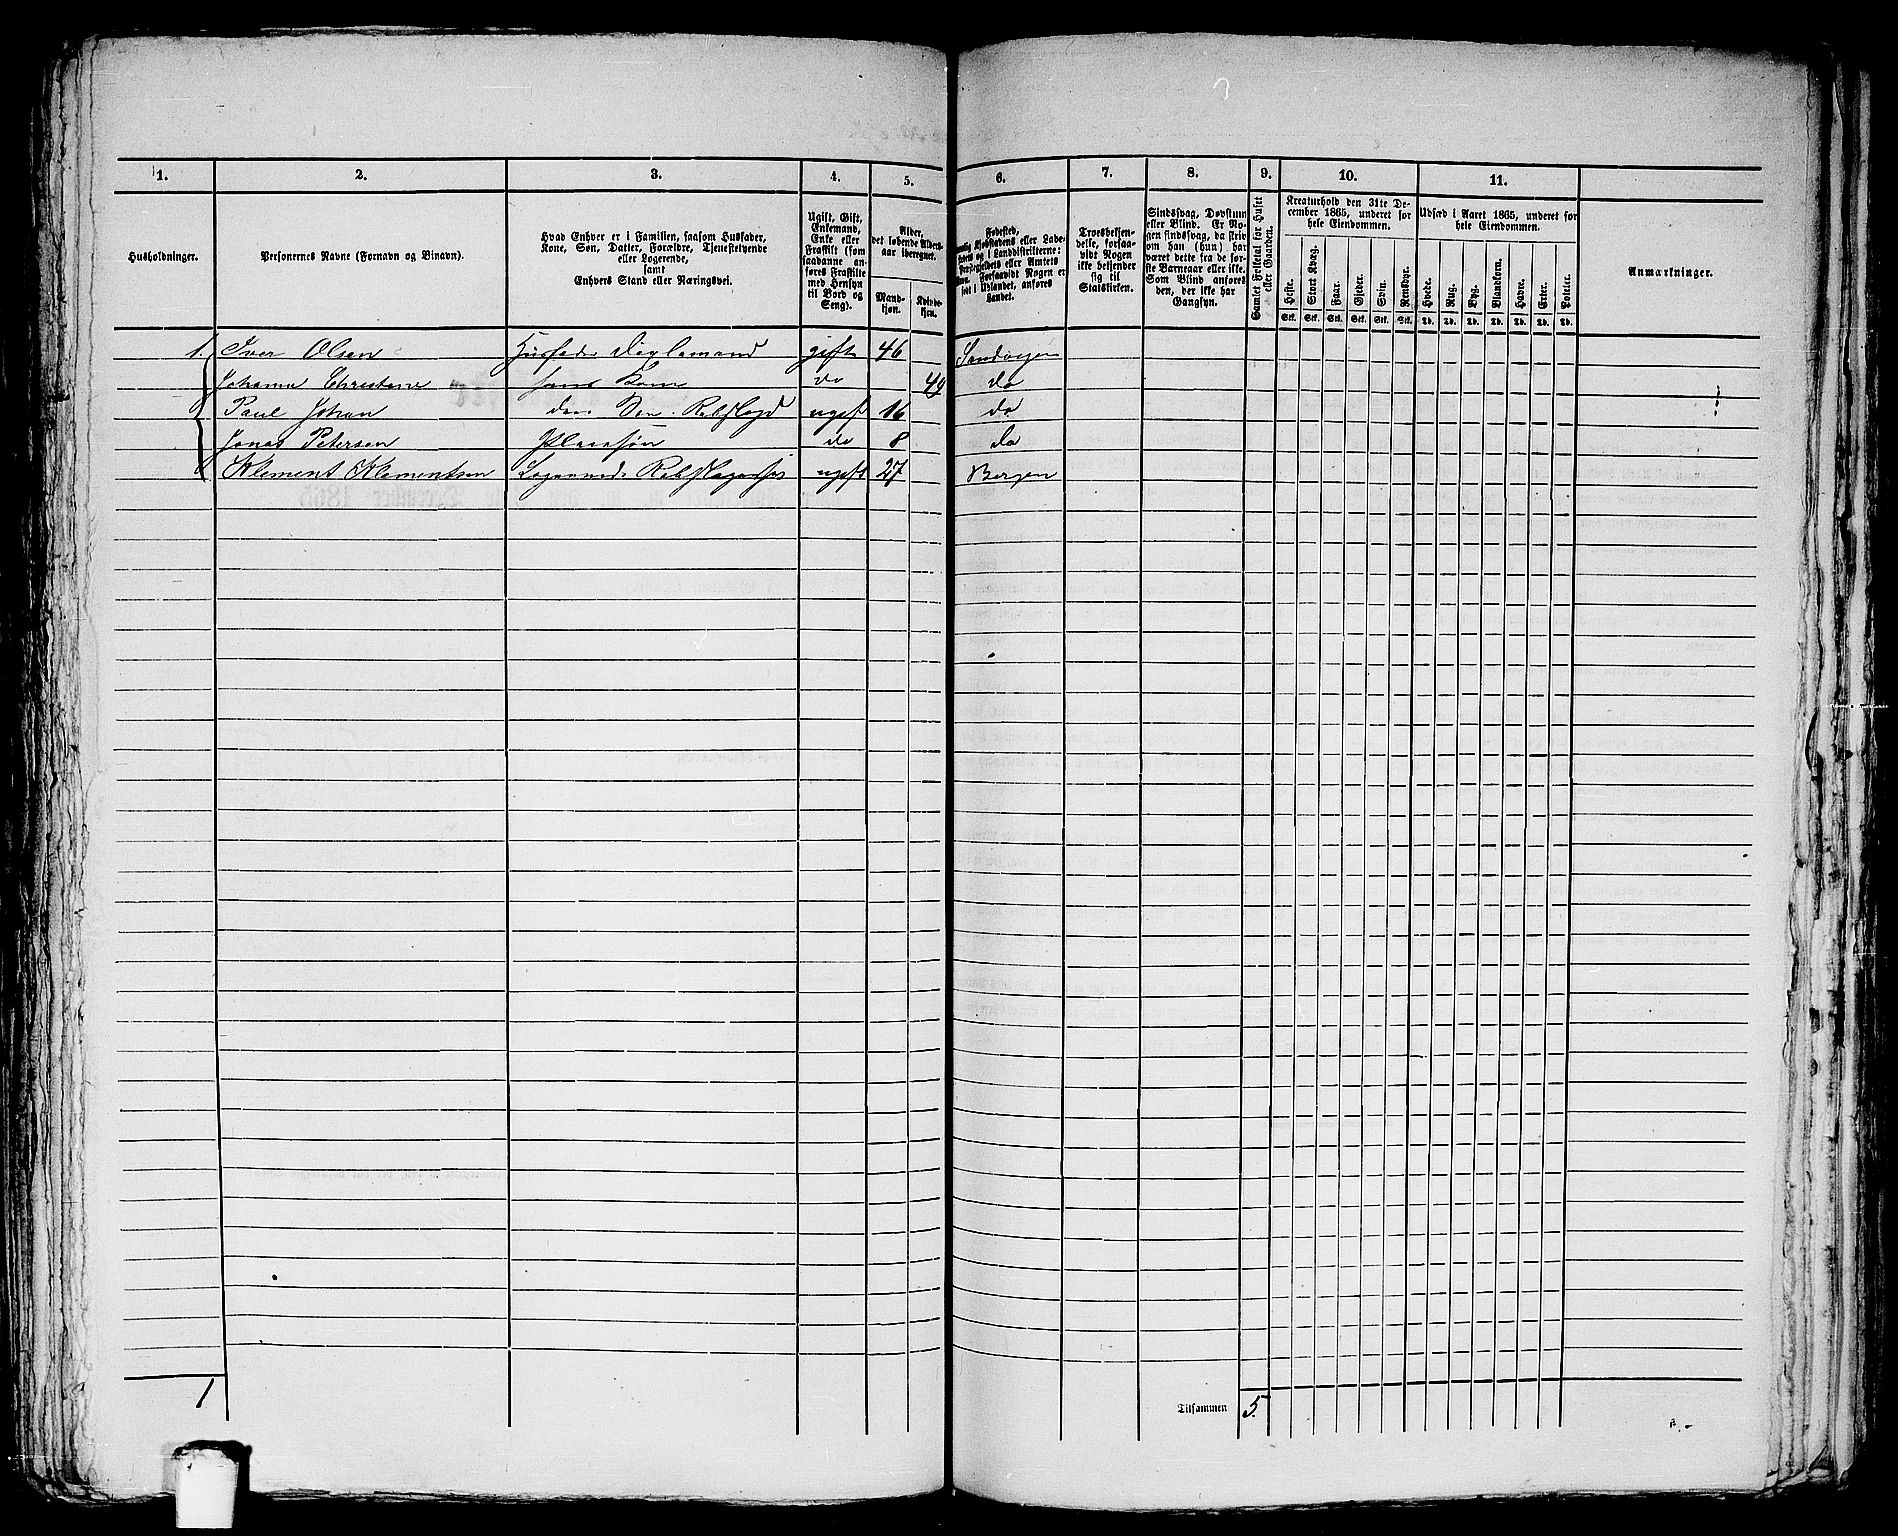 1. 2. 3. 4. 5. 6. 7. 8. 9. 10. 11.
Husholdninger.
Personernes Navne (Fornavn og Binavn).
Hvad Enhver er i Familien, saasom Husfader,
Kone, Søn, Datter, Forældre, Tjenestetyende
eller Logerende,
samt
Enhvers Stand eller Næringsvei.
Ugift, Gift,
Enkemand,
Enke eller
Fraskilt (som
saadanne an-
føres Fraskilte
med Hensyn
til Bord og
Seng).
Alder,
det løbende Alders-
aar iberegnet.
Mand-
kjøn.
Kvinde-
kjøn.
Fødested,
Kjøbstadens eller Lade-
og i Landdistrikterne:
eller Amtets
Forsaavidt Nogen er
født i Udlandet, anføres
Landet.
Troesbekjen-
delse, forsaa-
vidt Nogen
ikke bekjender
sig til
Statskirken.
Sindssvag, Døvstum
eller Blind. Er No-
gen sindssvag, da skriv
om han (hun) har
været dette fra de før-
ste Barneaar eller ikke.
Som Blind anføres
den, der ikke har
Gangsyn.
Samlet Folketal for Huset
eller Gaarden.
Kreaturhold den 31te De-
cember 1865, underet for
hele Eiendommen.
Heste. Stort Kvæg. Faar. Gjeder. Svin. Rensdyr.
Stk. Stk. Stk. Stk. Stk. Stk.
Udsæd i Aaret 1865, underet for
hele Eiendommen.
Hvede. Rug. Byg. Blandkorn. Havre. Erter. Poteter.
Td. Td. Td. Td. Td. Td. Td.
Anmærkninger.
1. Iver Olsen Husfader Daglemand gift 46 Sandvigen
Johanne Christane hans Kone do 49 do
Paul Johan Søn ugift 16 do
Jonas Petersen Pleiesøn do 8 do
Klement Klementsen ugift 27 Bergen
1 Tilsammen 5.